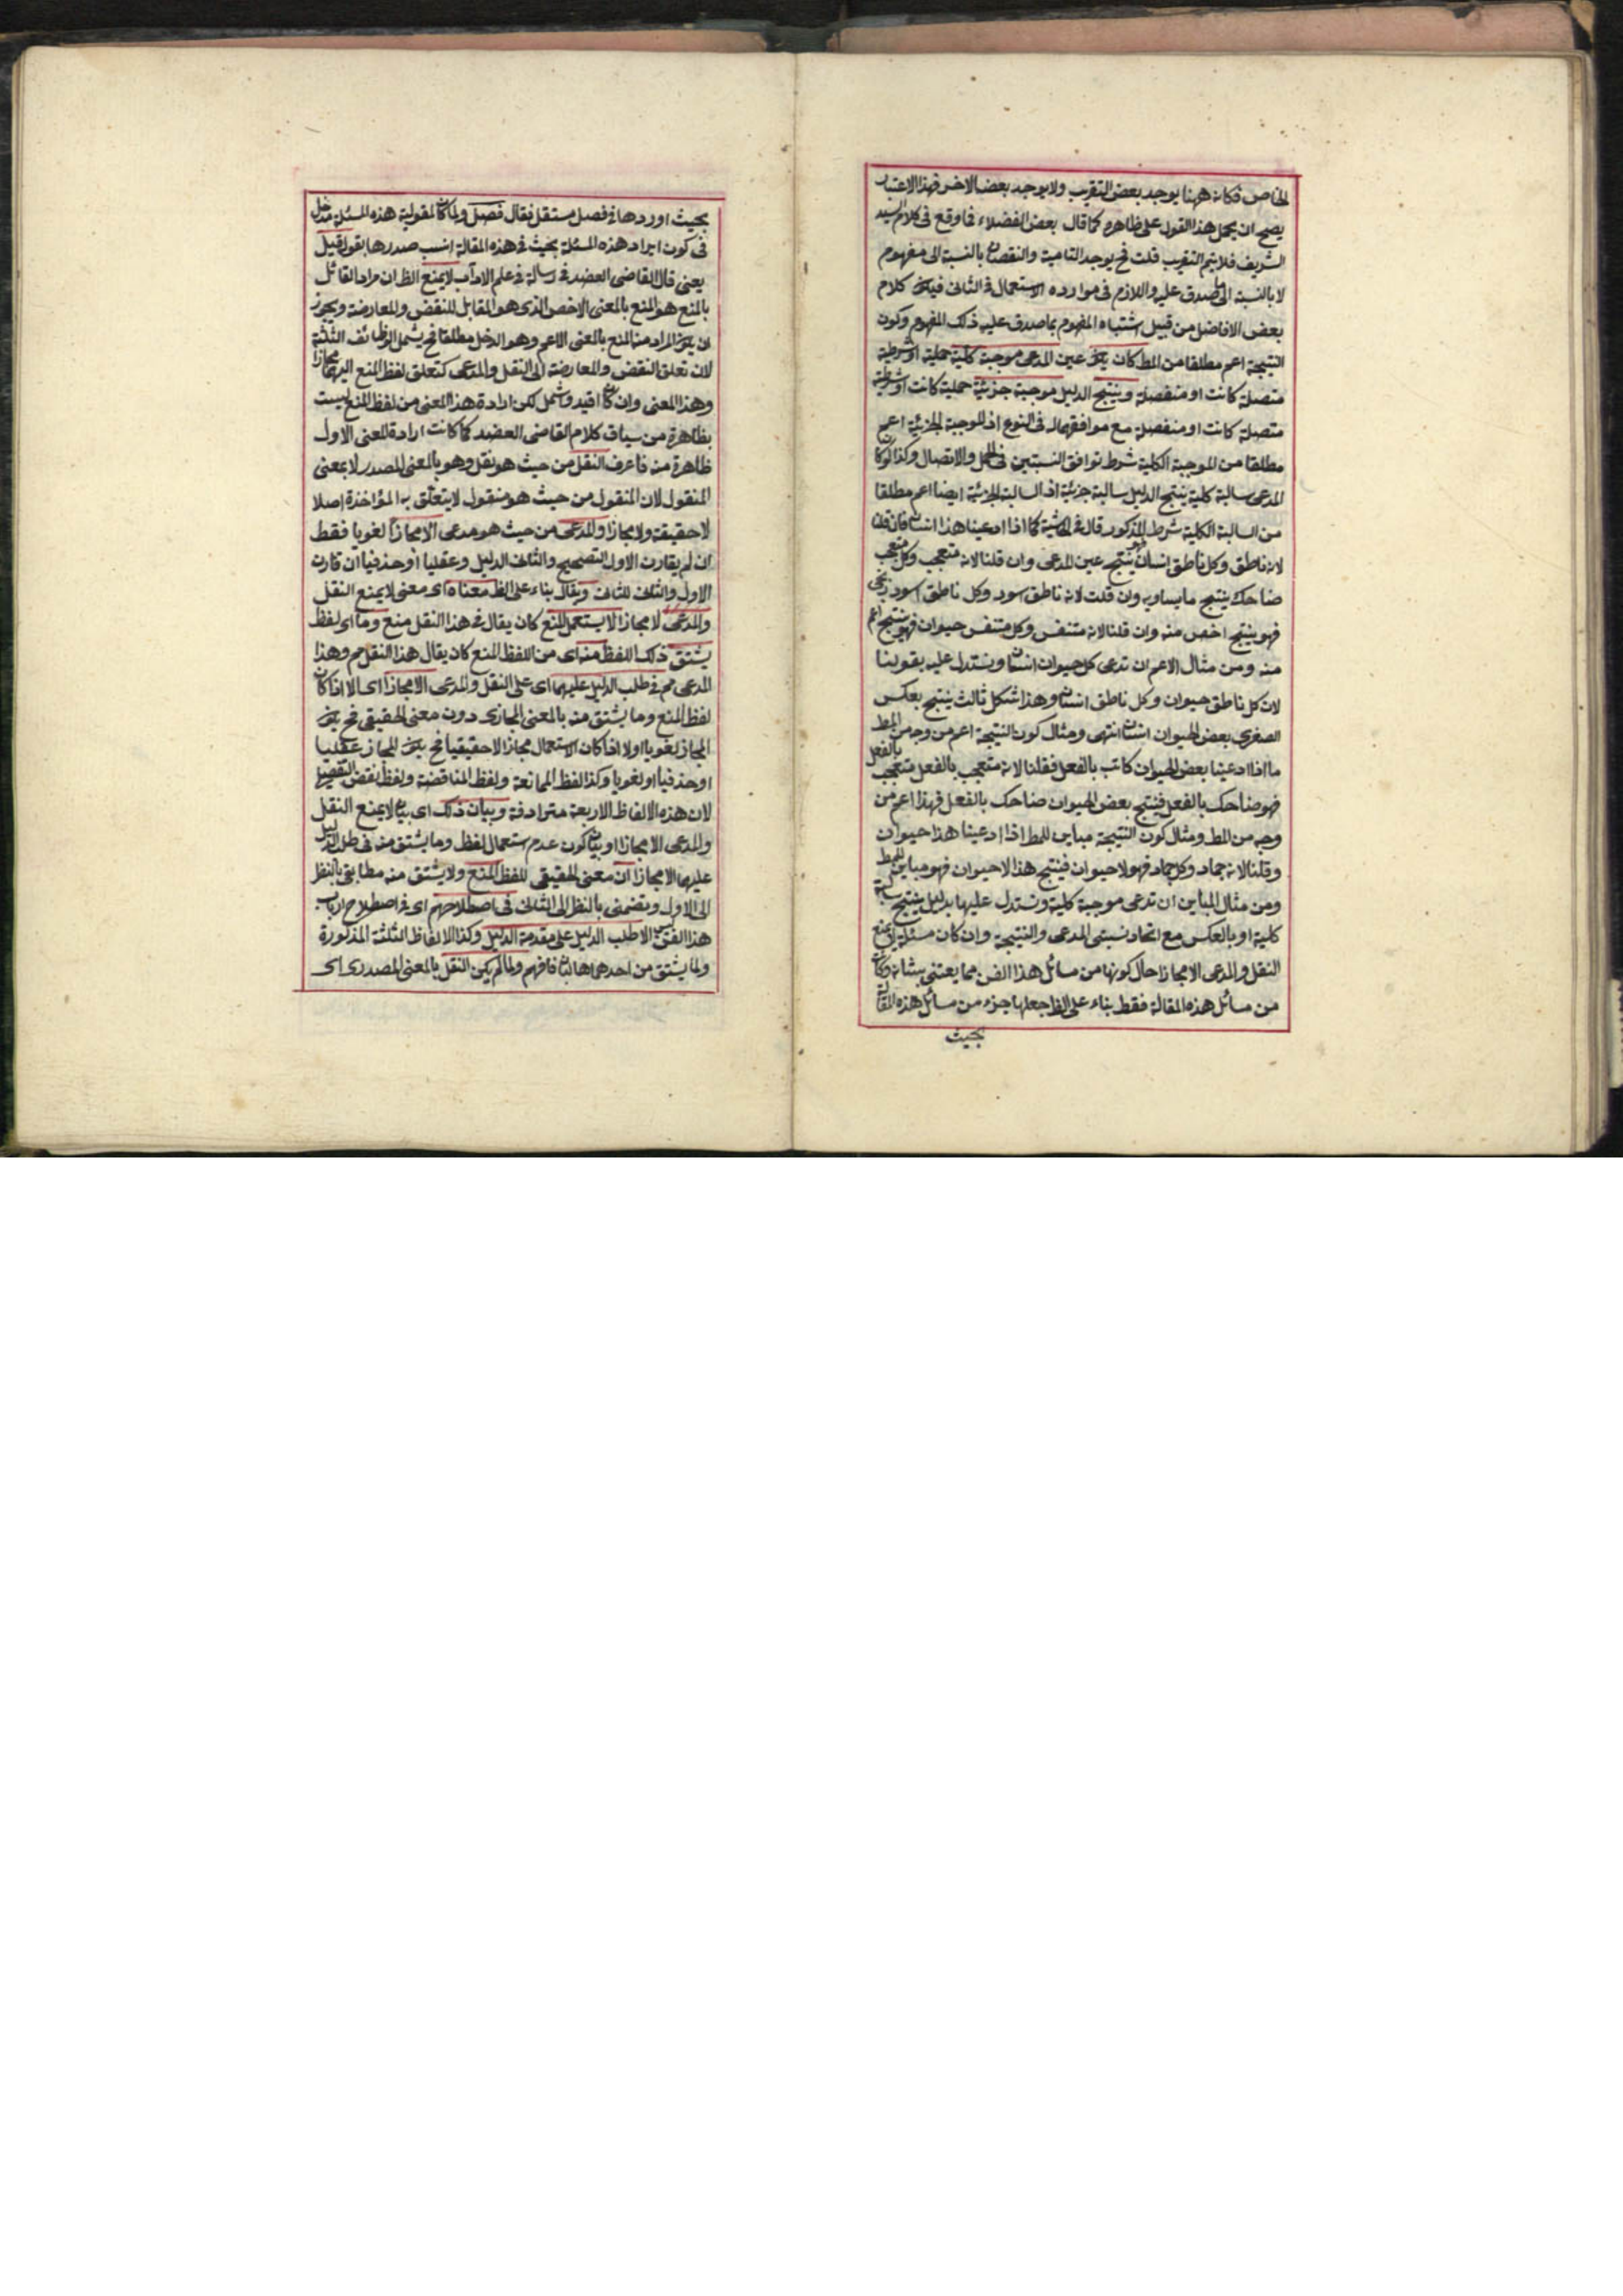 الخاص فكانه ههنا يوجد بعض التقريب ولا يوجد بعض الاخر فهذا الاعتبار
يصح ان يحمل هذا القول على ظاهره كما قال بعض الفضلاء فما وقع فى كلام السيد
الشريف فلا يتم التقريب قلت فح يوجد التامية والنقصان بالنسبة الى مفهوم
لا بالنسبة الى ما صدق عليه واللازم فى موارده الاستعمال فى الثانى فيكون كلام
بعض الافاضل من قبيل اشتباه المفهوم بما صدق عليه ذلك المفهوم وكون
النتيجة اعم مطلقا من المط كان يكون عين المدعى موجبة كلية حملية او شرطية
متصلة كانت او منفصلة وينتج الدليل موجبة جزئية حملية كانت او شرطية
متصلة كانت او منفصلة مع موافقهما له فى النوع اذ الموجبة الجزئية اعم
مطلقا من الموجبة الكلية شرط توافق النسبتين فى الحمل والاتصال وكذا لو كان
المدعى سالبة كلية ينتج الدليل سالبة جزئية اذ السالبة الجزئية ايضا اعم مطلقا
من السالبة الكلية شرط المذكور قال فى الحاشية كما اذا ادعينا هذا انسان فان قلنا
لانه ناطق وكل ناطق انسان فهو ينتج عين المدعى وان قلنا لانه متعجب وكل متعجب
ضاحك ينتج ما يساويه وان قلت لانه ناطق اسود وكل ناطق اسود زنجى
فهو ينتج اخص منه وان قلنا لانه متنفس وكل متنفس حيوان فهو ينتج اعم
منه ومن مثال الاعم ان تدعى كل حيوان انسان ونستدل عليه بقولنا
لان كل ناطق حيوان وكل ناطق انسان وهذا شكل ثالث ينتج بعكس
الصغرى بعض الحيوان انسان انتهى ومثال كون النتيجة اعم من وجه من المط
ما اذا ادعينا بعض الحيوان كاتب بالفعل فقلنا لانه متعجب بالفعل وكل متعجب بالفعل
فهو ضاحك بالفعل فينتج بعض الحيوان ضاحك بالفعل فهذا اعم من
وجه من المط ومثال كون النتيجة مباين للمط اذا ادعينا هذا حيوان
وقلنا لانه جماد وكل جماد فهو لا حيوان فينتج هذا لا حيوان فهو مباين للمط
ومن مثال المباين ان تدعى موجبة كلية ونستدل عليها بدليل ينتج سالبة
كلية او بالعكس مع اتحاد نسبتى المدعى والنتيجة وان كان مسئلة لا يمنع
النقل والمدعى الا مجازا حال كونها من مسائل هذا الفن مما يعتنى بشانه وكان
من مسائل هذه المقالة فقط بناء على الظ جعلها جزء من مسائل هذه المقالة
بحيث
بحيث اوردها فى فصل مستقل فقال فصل ولما كان لمقولية هذه المسئلة مدخل
فى كون ايراد هذه المسئلة بحيث فى هذه المقالة انسب صدرها بقوله قيل
يعنى قال القاضى العضد فى رسالة فى علم الاداب لا يمنع الظ ان مراد القائل
بالمنع هو المنع بالمعنى الاخص الذى هو المقابل للنقض والمعارضة ويجوز
ان يكون المراد من المنع بالمعنى الاعم وهو الدخل مطلقا فح يشمل الوظائف الثلثة
لان تعلق النقض والمعارضة الى النقل والمدعى كتعلق لفظ المنع اليهما مجازا
وهذا المعنى وان كان افيد واشمل لكن ارادة هذا المعنى من لفظ المنع ليست
بظاهرة من سياق كلام القاضى العضد كما كانت ارادة المعنى الاول
ظاهرة منه فاعرف النقل من حيث هو نقل وهو بالمعنى المصدر لا بمعنى
المنقول لان المنقول من حيث هو منقول لا يتعلق به المؤاخذة اصلا
لا حقيقة ولا مجازا والمدعى من حيث هو مدعى الا مجازا لغويا فقط
ان لم يقارن الاول التصحيح والثانى الدليل وعقليا او حذفيا ان قارن
الاول والثانى للثانى ويقال بناء على الظ معناه اى معنى لا يمنع النقل
والمدعى الا مجازا لا يستعمل المنع كان يقال فى هذا النقل منع وما اى لفظ
يشتق ذلك اللفظ منه اى من اللفظ المنع كان يقال هذا النقل مم وهذا
المدعى مم فى طلب الدليل عليهما اى على النقل والمدعى الا مجازا اى الا اذا كان
لفظ المنع وما يشتق منه بالمعنى المجازى دون معنى الحقيقى فح يكون
المجاز لغويا او لا اذا كان الاستعمال مجازا لا حقيقيا فح يكون المجاز عقليا
او حذفيا او لغويا وكذا لفظ الممانعة ولفظ المناقضة ولفظ نقض التفصيلى
لان هذه الالفاظ الاربعة مترادفة وبيان ذلك اى بيان لا يمنع النقل
والمدعى الا مجازا او بيان كون عدم استعمال لفظ وما يشتق منه فى طلب الدليل
عليهما الا مجازا ان معنى الحقيقى للفظ المنع ولا يشتق منه مطابقى بالنظر
الى الاول وتضمنى بالنظر الى الثانى فى اصطلاحهم اى فى اصطلاح ارباب
هذا الفن ليس الا طلب الدليل على مقدمة الدليل وكذا الالفاظ الثلثة المذكورة
ولما يشتق من احدهما فافهم ولما لم يكن النقل بالمعنى المصدرى اى